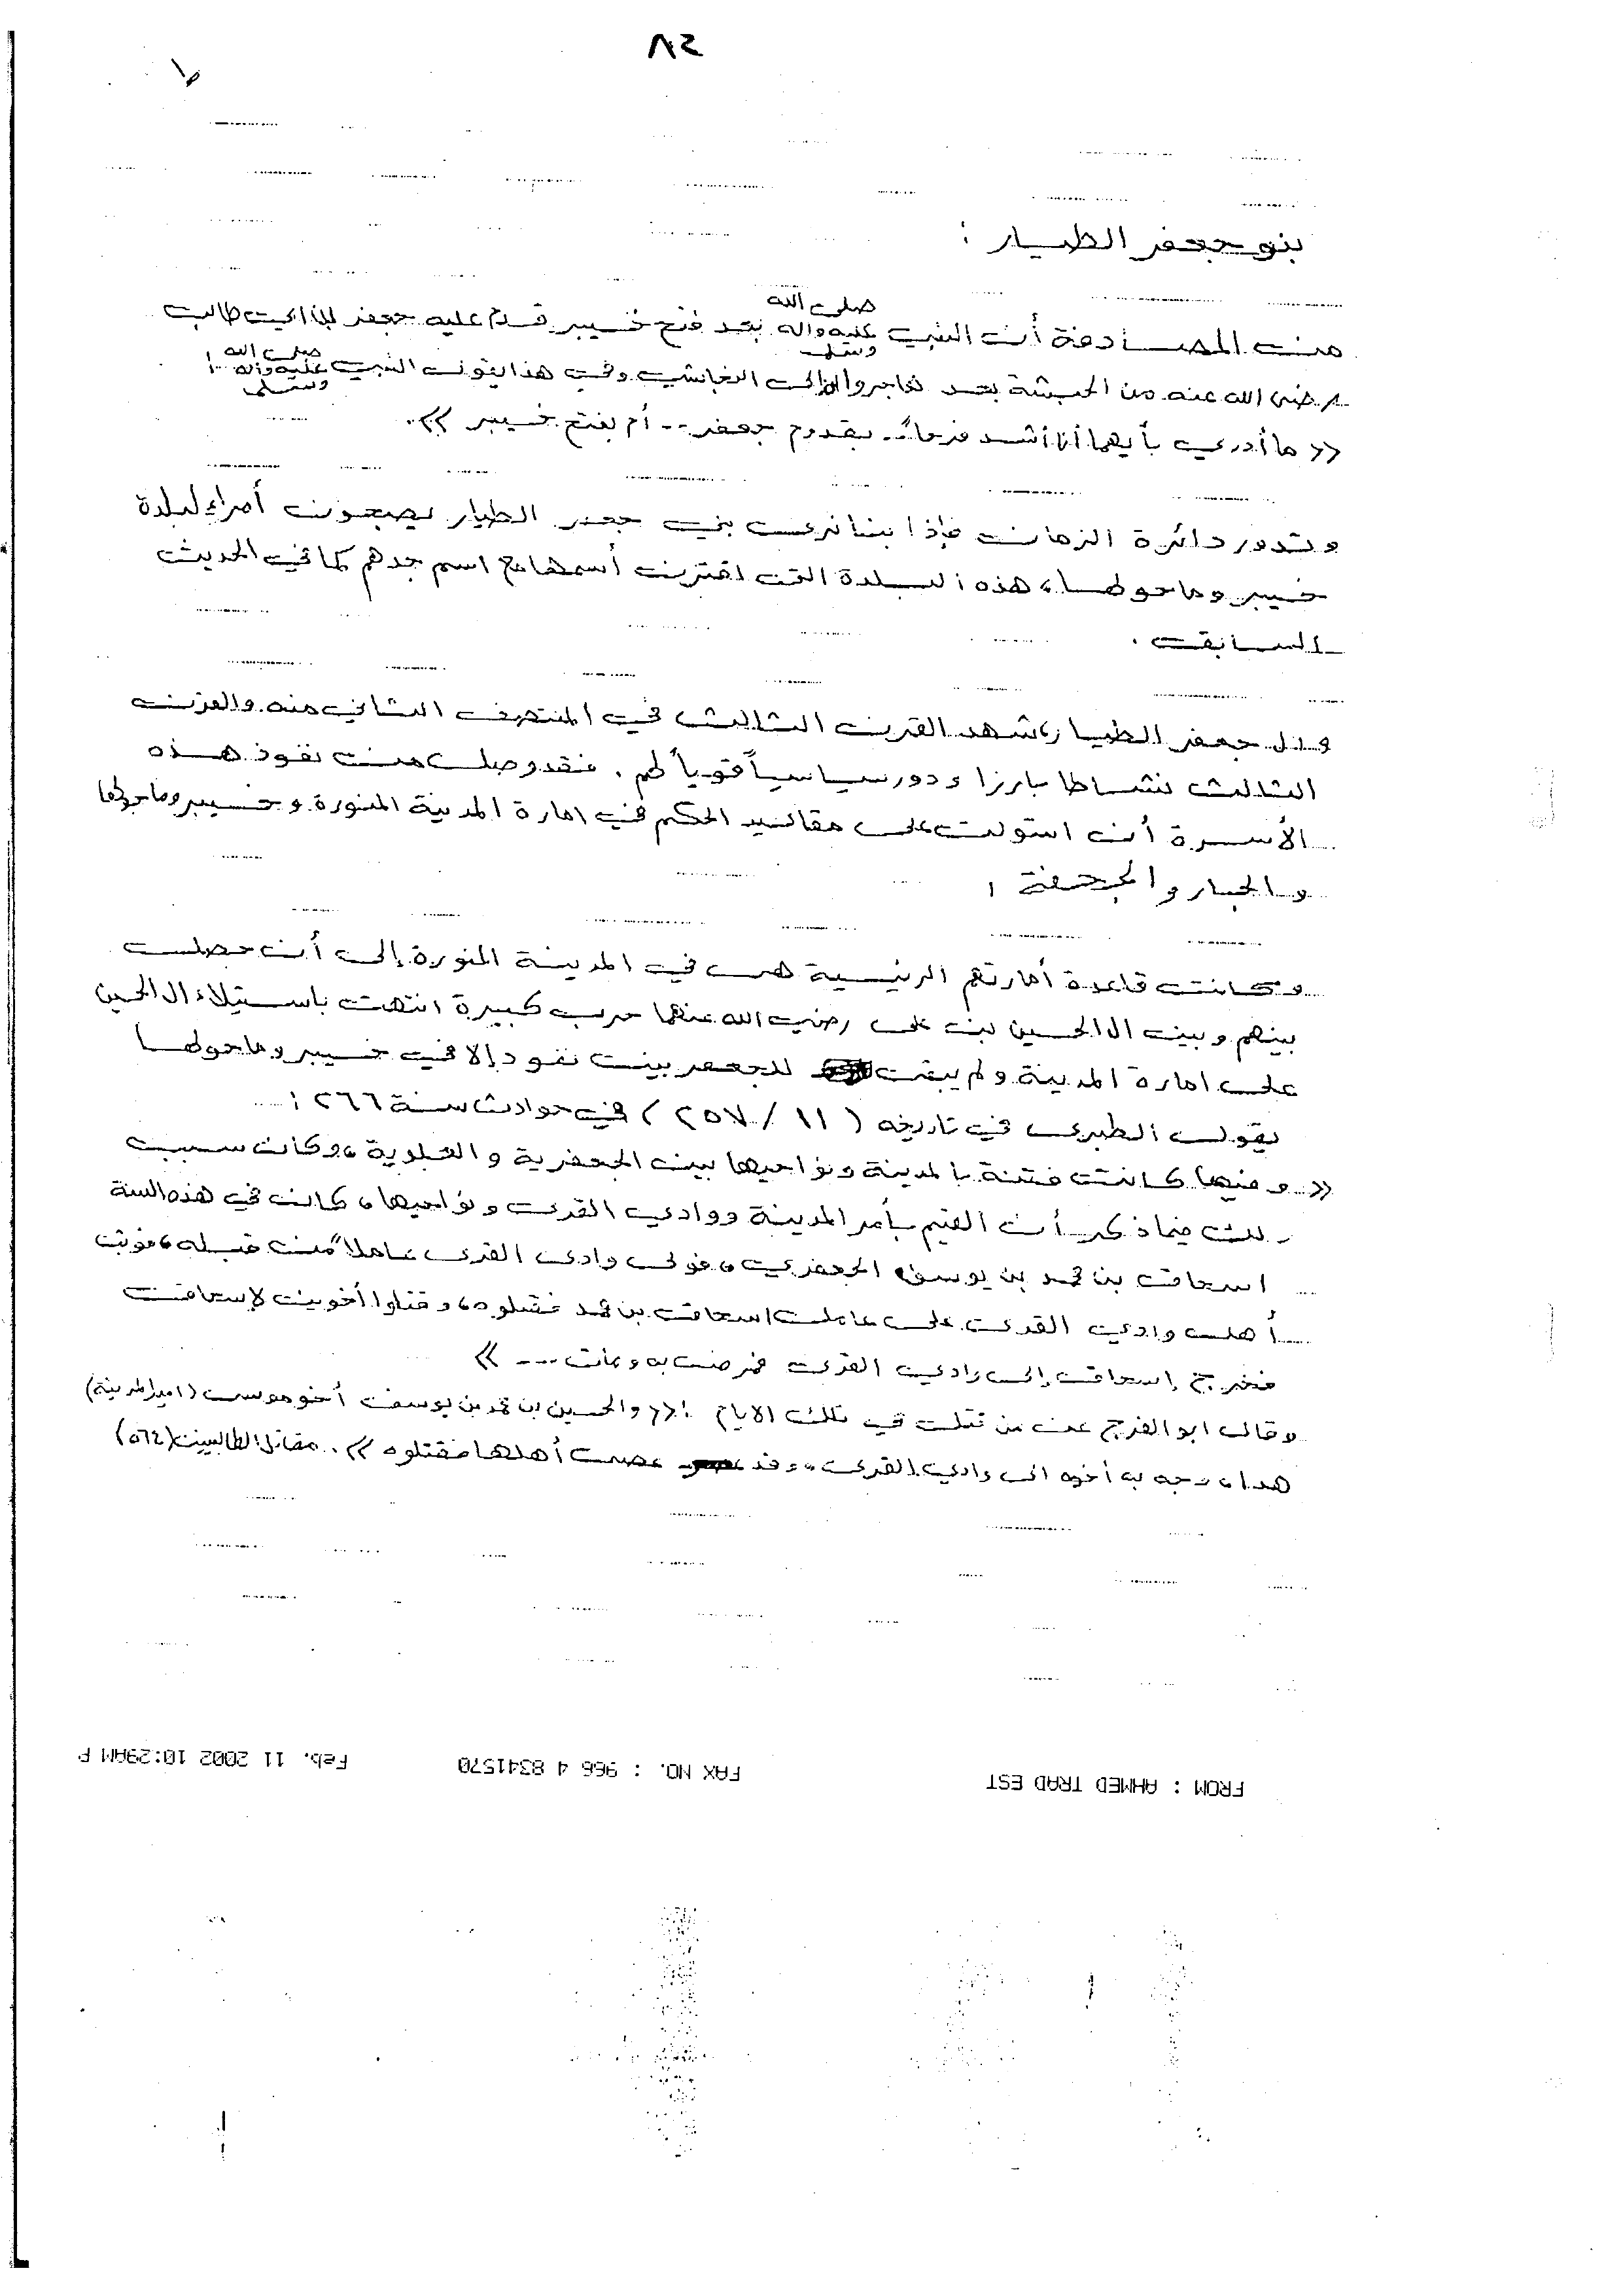 ٨٢
١
بنو جعفر الطيار :
من المصادفة أن النبي صلى الله عليه واله وسلم بعد فتح خيبر قدم عليه جعفر ابن ابي طالب
رضى الله عنه من الحبشة بعد هاجروا إلى النجاشي وفي هذا يقول النبي صلى الله عليه واله وسلم :
« ما أدري بأيهما أنا أشد فرحاً .. بقدوم جعفر .. أم بفتح خيبر » .
وتدور دائرة الزمان فإذا بنا نرى بني جعفر الطيار يصبحون أمراء لبلدة
خيبر وما حولها ، هذه البلدة التي اقترن أسمها مع اسم جدهم كما في الحديث
السابق .
وال جعفر الطيار ، شهد القرن الثالث في المنتصف الثاني منه والقرن
الثالث نشاطا بارزا ودور سياسياً قوياً لهم . فقد وصل من نفوذ هذه
الأسرة أن استولت على مقاليد الحكم في امارة المدينة المنورة و خيبر وما حولها
والجار والجحفة .
وكانت قاعدة أمارتهم الرئيسية هي في المدينة المنورة إلى أن حصلت
بينهم وبين ال الحسين بن على رضي الله عنهما حرب كبيرة انتهت باستيلاء ال الحسين
على امارة المدينة ولم يبق للجعفريين نفوذ إلا في خيبر وما حولها
يقول الطبري في تاريخه ( ١١ / ٢٥٧ ) في حوادث سنة ٢٦٦ :
« و منها كانت فتنة بالمدينة ونواحيها بين الجعفرية والعلوية ، وكان سبب
ذلك فيما ذكر أن القيم بأمر المدينة ووادي القرى ونواحيها ، كان في هذه السنة
اسحاق بن محمد بن يوسف الجعفري ، فولى وادى القرى عاملاً من قبله ، فوثب
أهل وادي القرى على عامل اسحاق بن محمد فقتلوه ، وقتلوا أخوين لإسحاق
فخرج إسحاق إلى وادي القرى فمرض به ومات ... »
وقال ابو الفرج عن من قتل في تلك الايام : « والحسين بن محمد بن يوسف أخو موسى (امير المدينة)
هذا ، وجه به أخوه الى وادي القرى ، وقد عصى أهلها فقتلوه » . مقاتل الطالبيين (٥٦٤)
FROM : AHMED TRAD EST FAX NO. : 966 4 8341570 Feb. 11 2002 10:29AM P